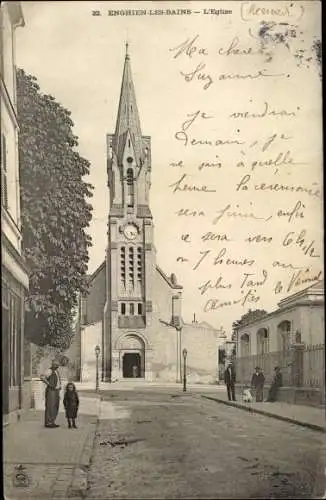 32. ENGHIEN-LES-BAINS – L'Eglise
(Mercredi)
Ma chère
Suzanne
je viendrai
demain, je
ne sais pas à quelle
heure la cérémonie
sera finie, enfin
ce sera vers 6h½
7 heures au
plus tard
amitiés